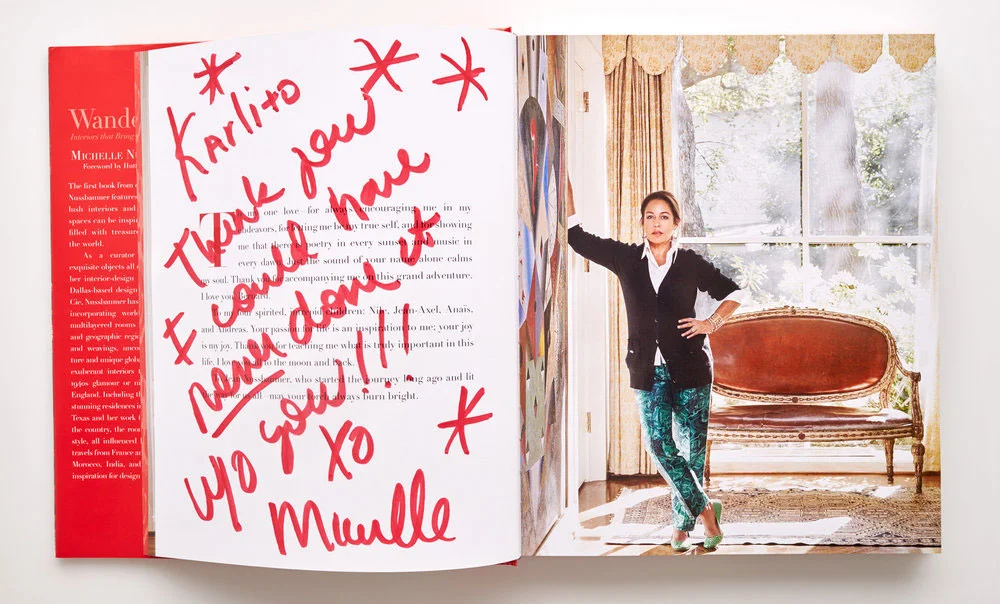 Wande
Interiors that Bring
MICHELLE N
Foreword by Hut
The first book from
Nussbaumer features
lush interiors and
spaces can be inspi
filled with treasur
the world.
As a curator
exquisite objects all
her interior-design
Dallas-based design
Cie, Nussbaumer has
incorporating world
multilayered rooms
and geographic regi
and weavings,
ture and unique glob
exuberant interiors
1940s glamour or ni
England. Including th
stunning residences i
Texas and her work
the country, the roo
style, all influenced
travels from France a
Morocco, India, and
inspiration for design
Karlito
Thank you
I could have
never done it
w/o you!!!
XO
Michelle
To my one love—for always encouraging me in my
endeavors, for letting me be my true self, and for showing
me that there is poetry in every sunset and music in
every dawn. Just the sound of your name alone calms
my soul. Thank you for accompanying me on this grand adventure.
I love you, Bernard.
To my four spirited, intrepid children: Nile, Jean-Axel, Anaïs,
and Andreas. Your passion for life is an inspiration to me; your joy
is my joy. Thank you for teaching me what is truly important in this
life. I love you all to the moon and back.
To Jean Nussbaumer, who started the journey long ago and lit
the way for us all—may your torch always burn bright.